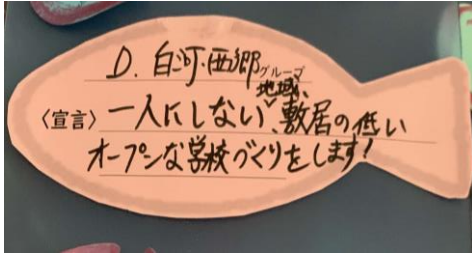 D. 白河・西郷グループ
〈宣言〉一人にしない、地域、敷居の低い
オープンな学校づくりをします!